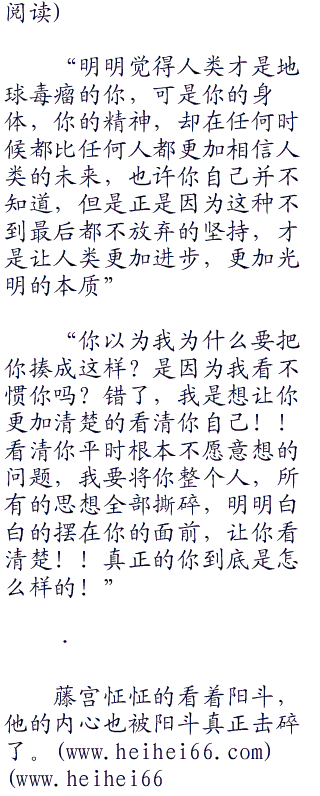 阅读)
“明明觉得人类才是地
球毒瘤的你，可是你的身
体，你的精神，却在任何时
候都比任何人都更加相信人
类的未来，也许你自己并不
知道，但是正是因为这种不
到最后都不放弃的坚持，才
是让人类更加进步，更加光
明的本质”
“你以为我为什么要把
你揍成这样？是因为我看不
惯你吗？错了，我是想让你
更加清楚的看清你自己！！
看清你平时根本不愿意想的
问题，我要将你整个人，所
有的思想全部撕碎，明明白
白的摆在你的面前，让你看
清楚！！真正的你到底是怎
么样的！”
.
藤宫怔怔的看着阳斗，
他的内心也被阳斗真正击碎
了。(www.heihei66.com)
(www.heihei66